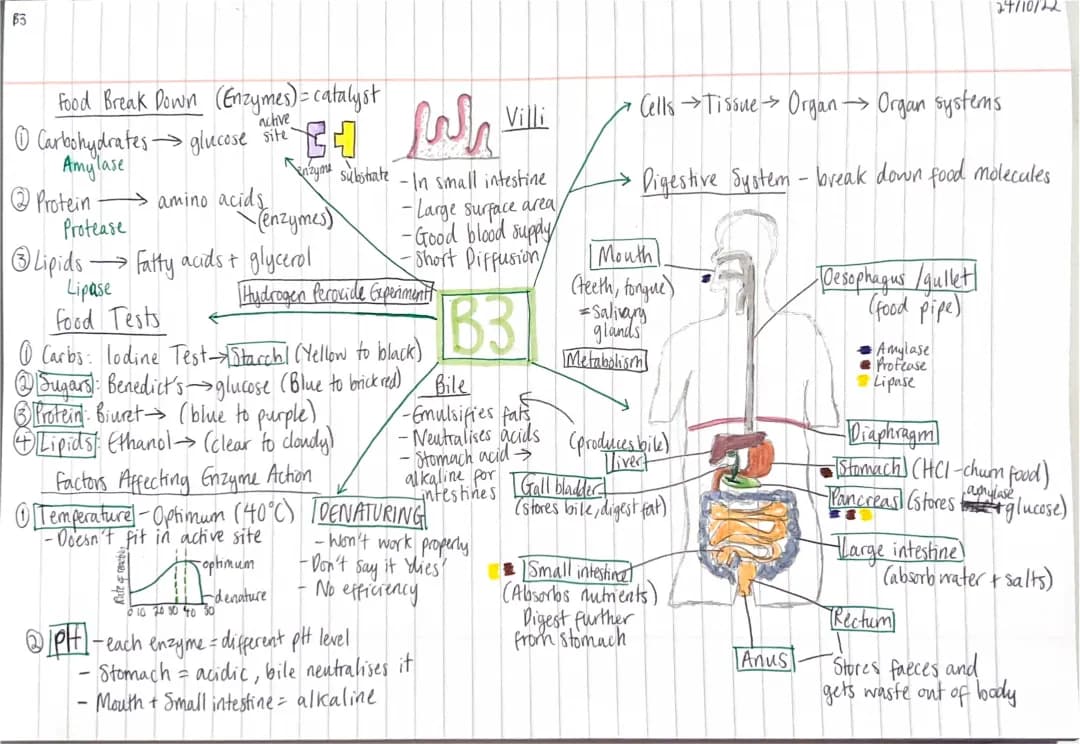 B3
24/10/22
Food Break Down (Enzymes) = catalyst
① Carbohydrates → glucose
Amylase
active
site
enzyme substrate
② Protein → amino acids
Protease
(enzymes)
③ Lipids → Fatty acids + glycerol
Lipase
Hydrogen Peroxide Experiment
Villi
- In small intestine
- Large surface area
- Good blood supply
- Short Diffusion
Cells → Tissue → Organ → Organ systems
Digestive System - break down food molecules
B3
Food Tests
① Carbs: Iodine Test → Starch (Yellow to black)
② Sugars: Benedict's → glucose (Blue to brick red)
③ Protein: Biuret → (blue to purple)
④ Lipids: Ethanol → (clear to cloudy)
Factors Affecting Enzyme Action
① Temperature - Optimum (40°C)
- Doesn't fit in active site
Rate of reaction
optimum
denature
0 10 20 30 40 50
② pH - each enzyme = different pH level
- Stomach = acidic, bile neutralises it
- Mouth + Small intestine = alkaline
DENATURING
- Won't work properly
- Don't say it 'dies'
- No efficiency
Bile
- Emulsifies fats
- Neutralises acids
- Stomach acid →
alkaline for
intestines
Mouth
(teeth, tongue)
= Salivary
glands
Metabolism
(produces bile)
Liver
Gall bladder
(stores bile, digest fat)
Small intestine
(Absorbs nutrients)
Digest further
from stomach
Oesophagus / gullet
(food pipe)
Amylase
Protease
Lipase
Diaphragm
Stomach (HCl - churn food)
Pancreas (stores amylase glucose)
Large intestine
(absorb water + salts)
Rectum
Anus
Stores faeces and
gets waste out of body